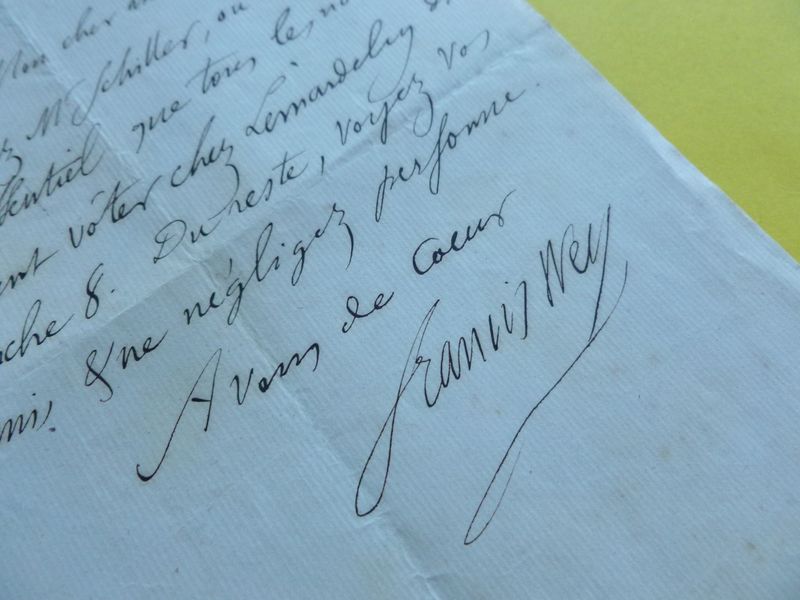 Mon cher
M. Schiller, ou
que tous les
voter chez Lemardelay
che 8. Du reste, voyez vos
mis, & ne négligez personne.
A vous de cœur
Francis Wey